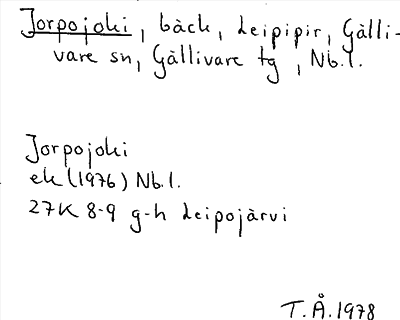 Jorpojoki, bäck, Leipipir, Gälli-
vare sn, Gällivare tg, Nb.l.
Jorpojoki
ek (1976) Nb.l.
27K 8-9 g-h Leipojärvi
T.Å. 1978